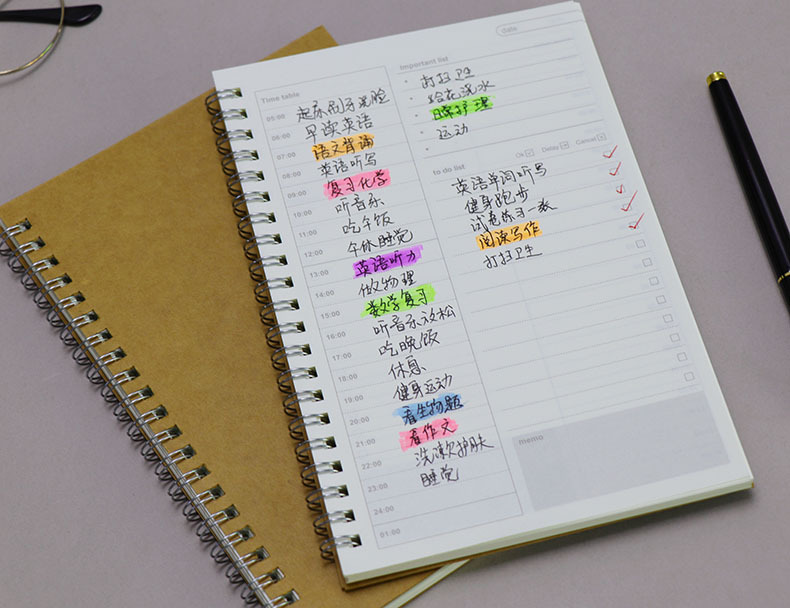 Time table
05:00
起床刷牙洗脸
06:00
早读英语
07:00
语文背诵
08:00
英语听写
09:00
复习化学
10:00
听音乐
11:00
吃午饭
12:00
午休睡觉
13:00
英语听力
14:00
做物理
15:00
数学复习
16:00
听音乐放松
17:00
吃晚饭
18:00
休息
19:00
健身运动
20:00
看生物题
21:00
看作文
22:00
洗漱护肤
23:00
睡觉
24:00
01:00
date
Important list
打扫卫生
给花浇水
日常护理
运动
to do list
Ok
Delay
Cancel
英语单词听写
健身跑步
试卷练习一张
阅读写作
打扫卫生
memo